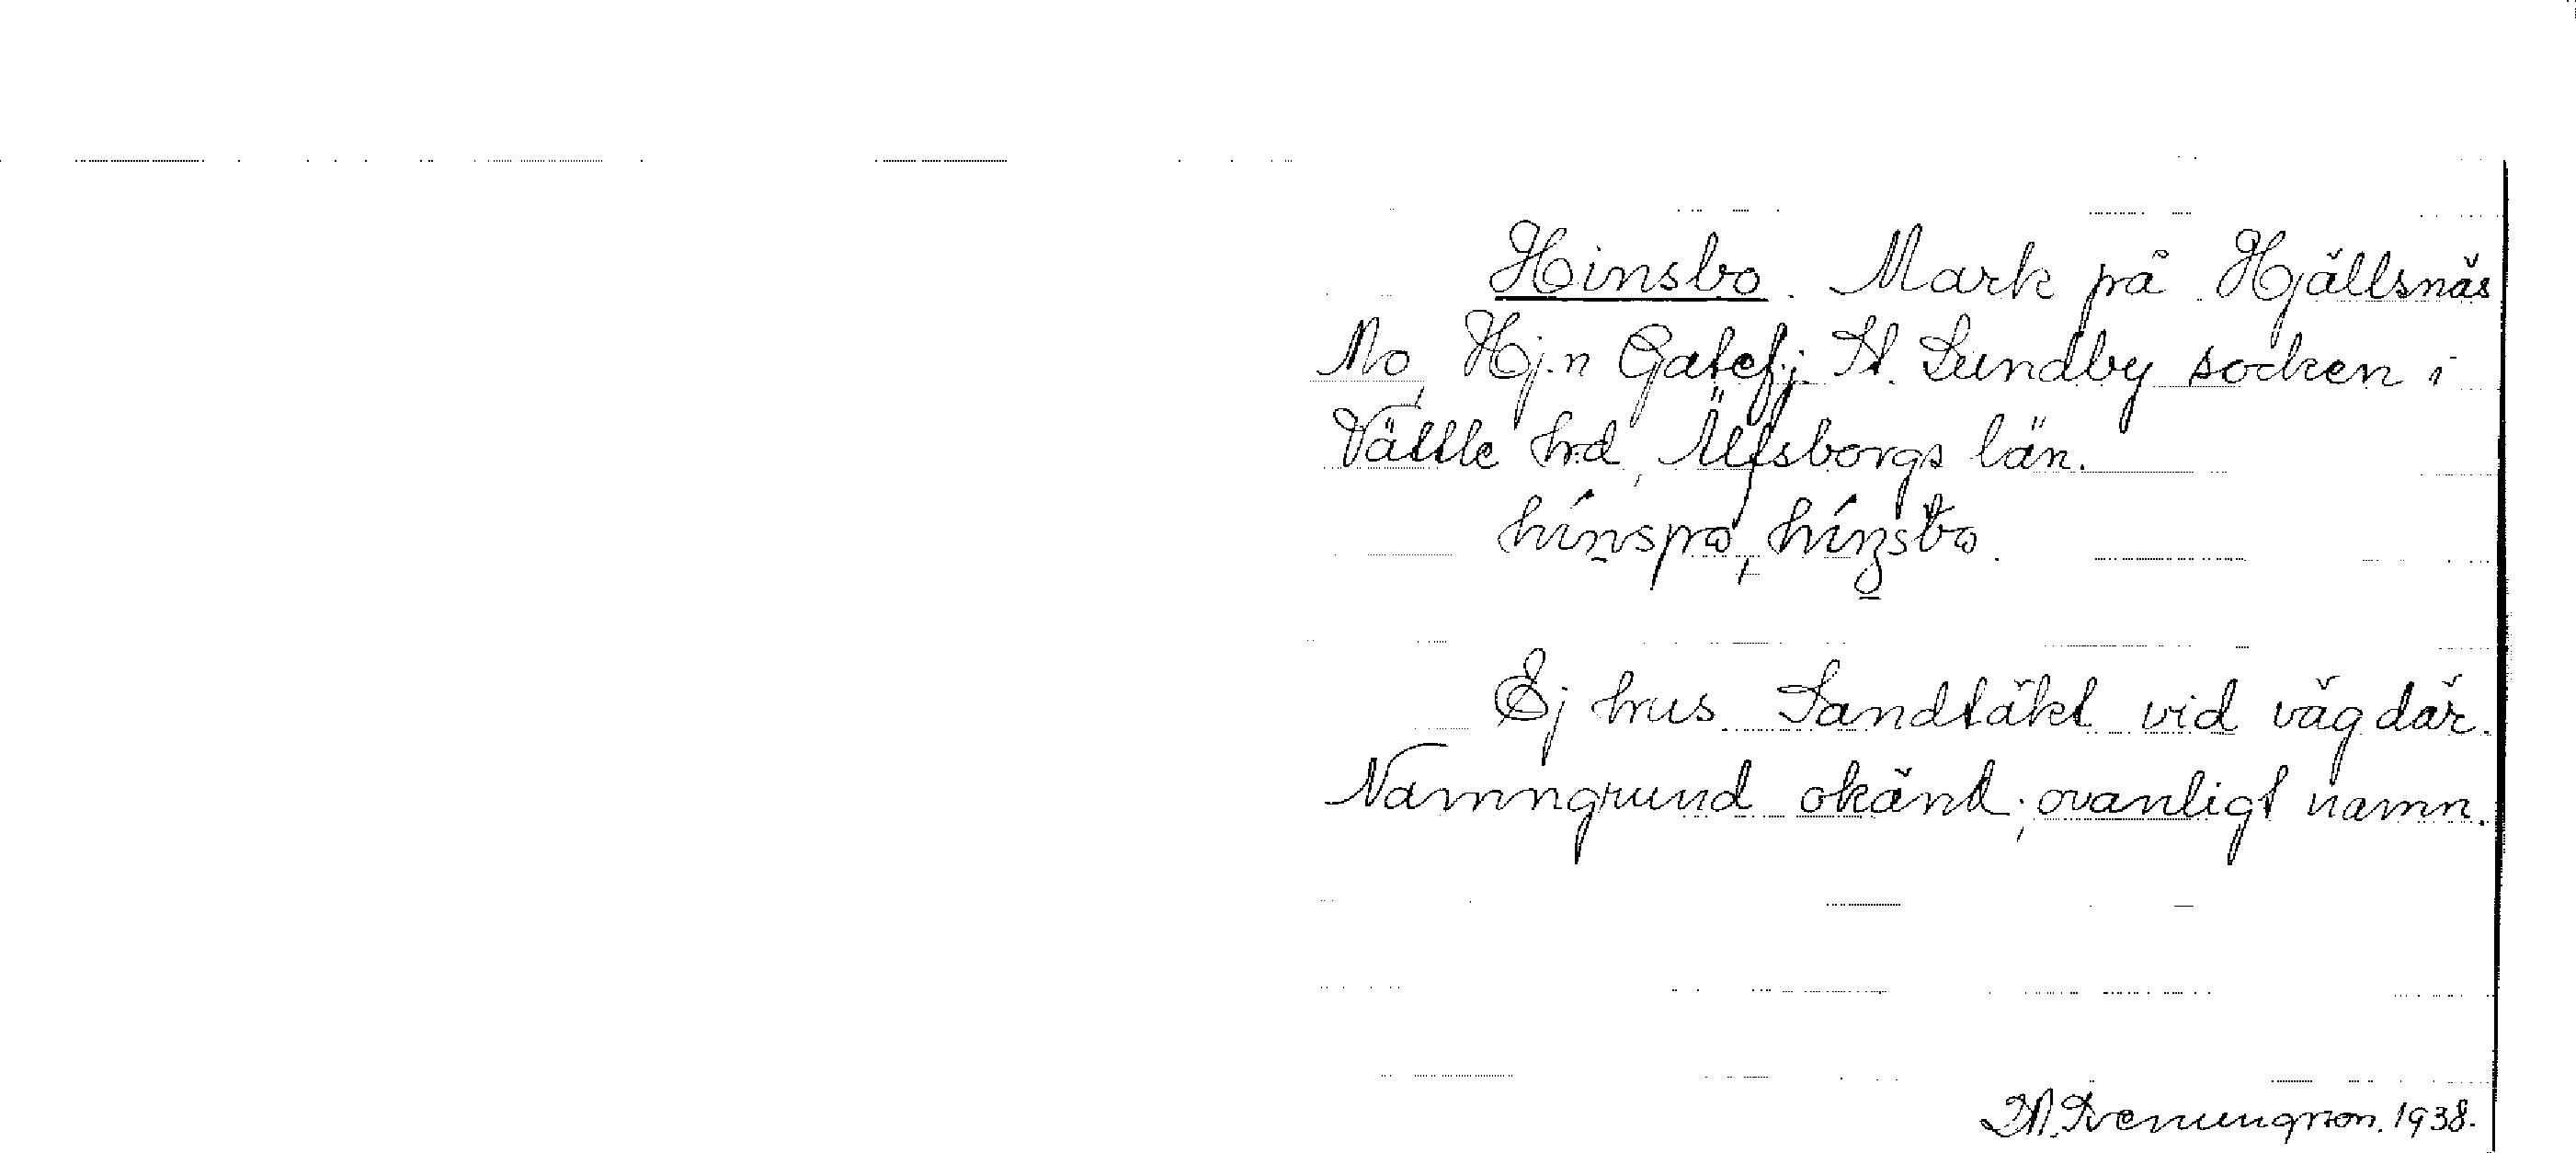 Hinsbo. Mark på Hjällsnäs
Mo, Hj.n Gatefj. St. Lundby socken i
Vättle hd, Älfsborgs län.
hínspo, hínsbo.
Ej hus. Sandtäkt vid väg där.
Namngrund okänd; ovanligt namn.
Svenungsson. 1938.